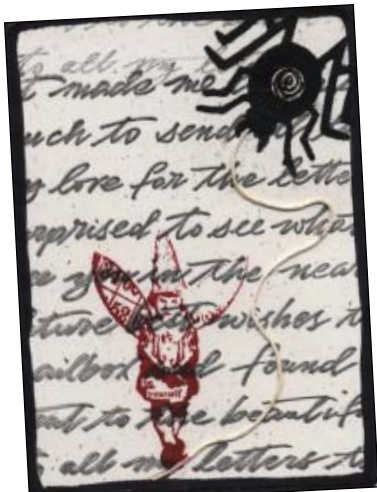 to all my
t made me
uch to send
y love for the lette
rprised to see what
ee you in the near
uture best wishes t
ailbox and found
out to the beautif
s all my letters t
yourself